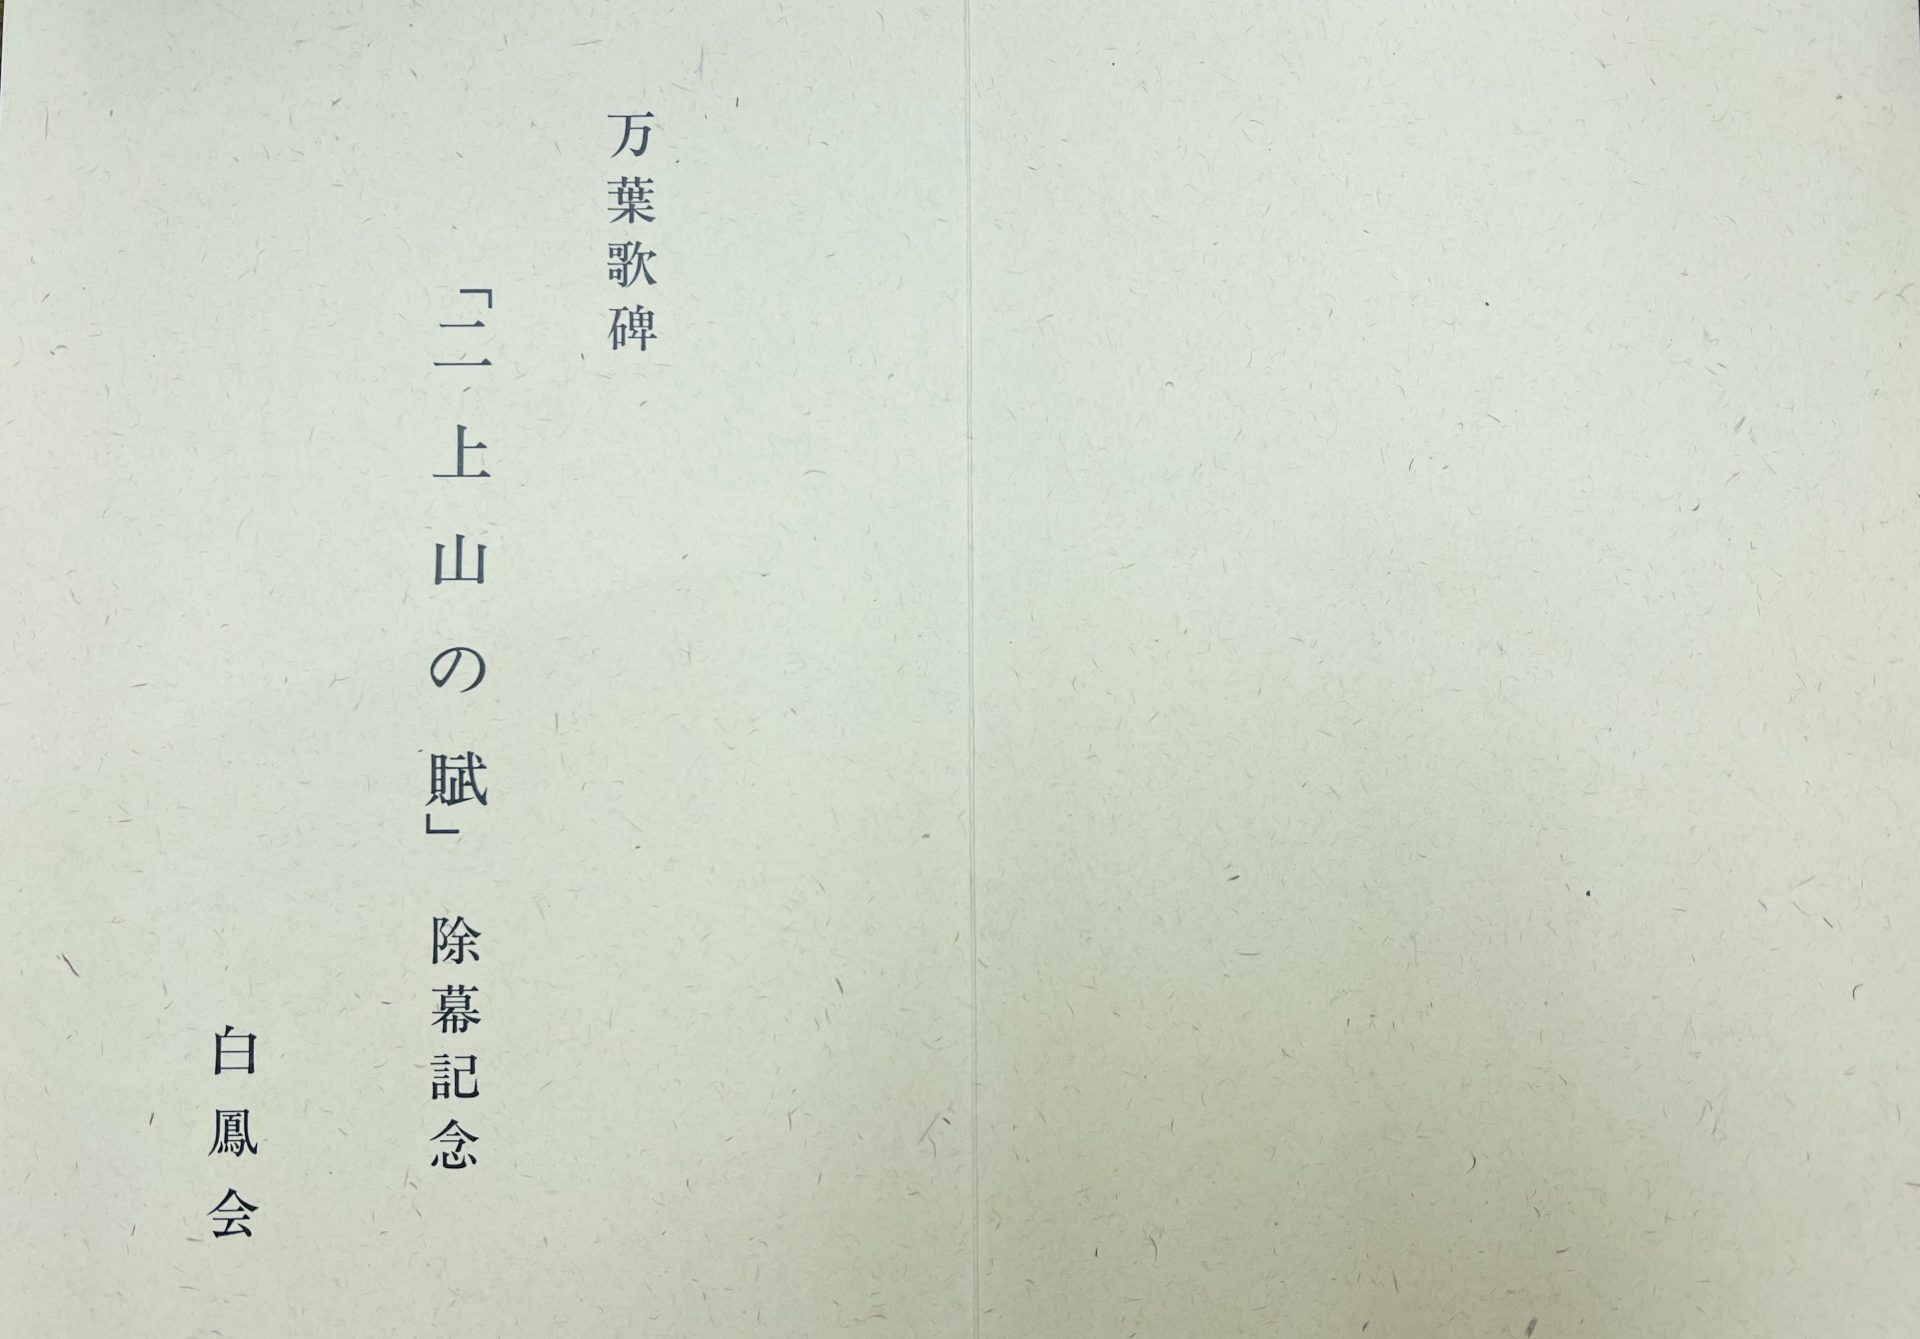 万葉歌碑
「二上山の賦」除幕記念
白鳳会